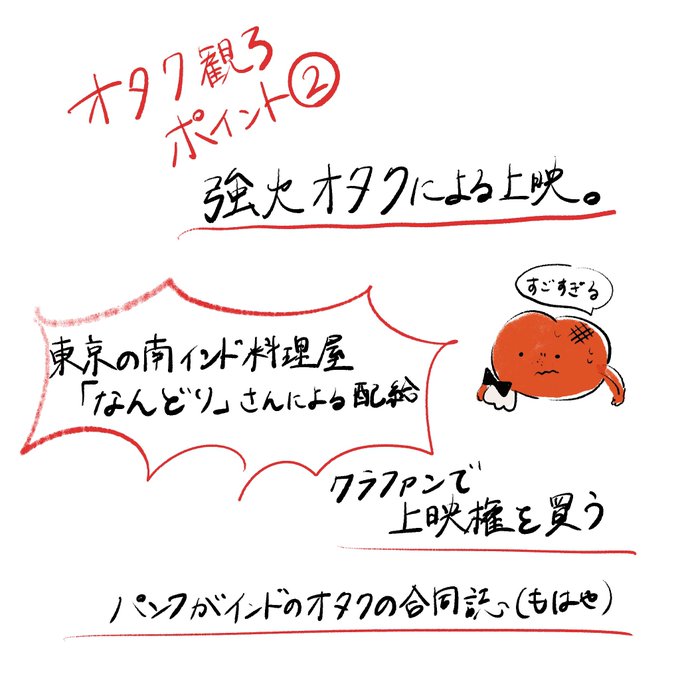 オタク観ろ
ポイント②
強火オタクによる上映。
すごすぎる
東京の南インド料理屋
「なんどり」さんによる配給
クラファンで
上映権を買う
パンフがインドのオタクの合同誌(もはや)